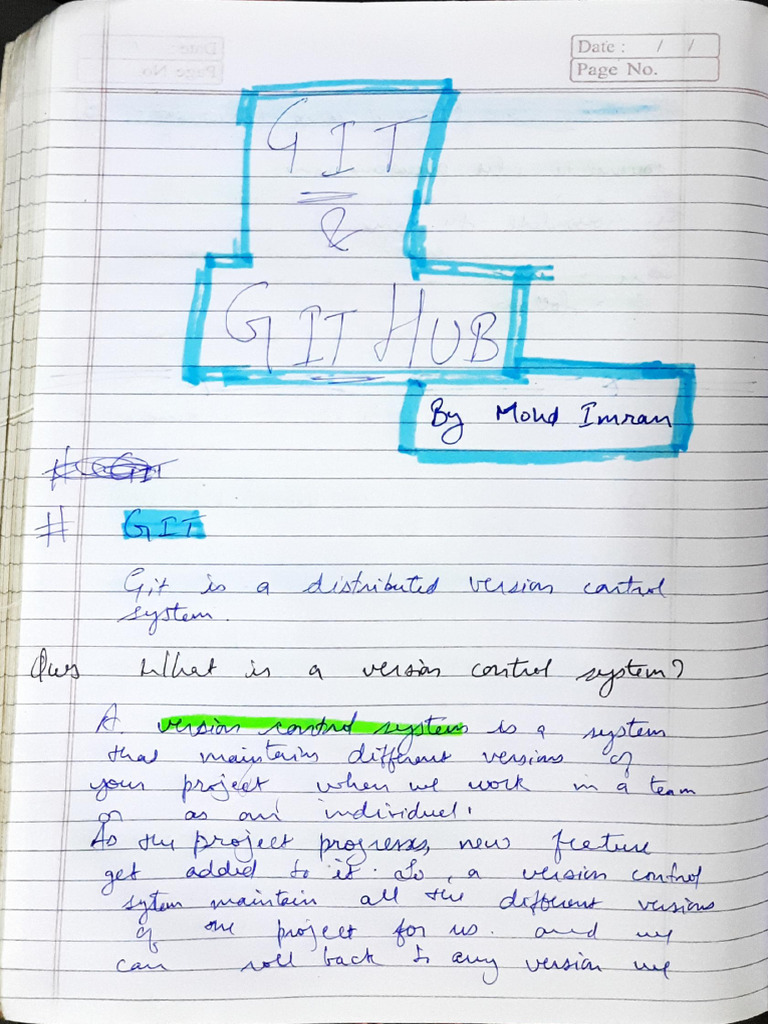 Date : / /
Page No.
GIT
&
GITHUB
By Mohd Imran
# GIT
# GIT
Git is a distributed version control
system.
Ques What is a version control system?
A version control system is a system
that maintains different versions of
your project when we work in a team
or as an individuel.
As the project progress, new feature
get added to it. So, a version control
sytem maintain all the different versions
of the project for us. and we
can roll back to any version we